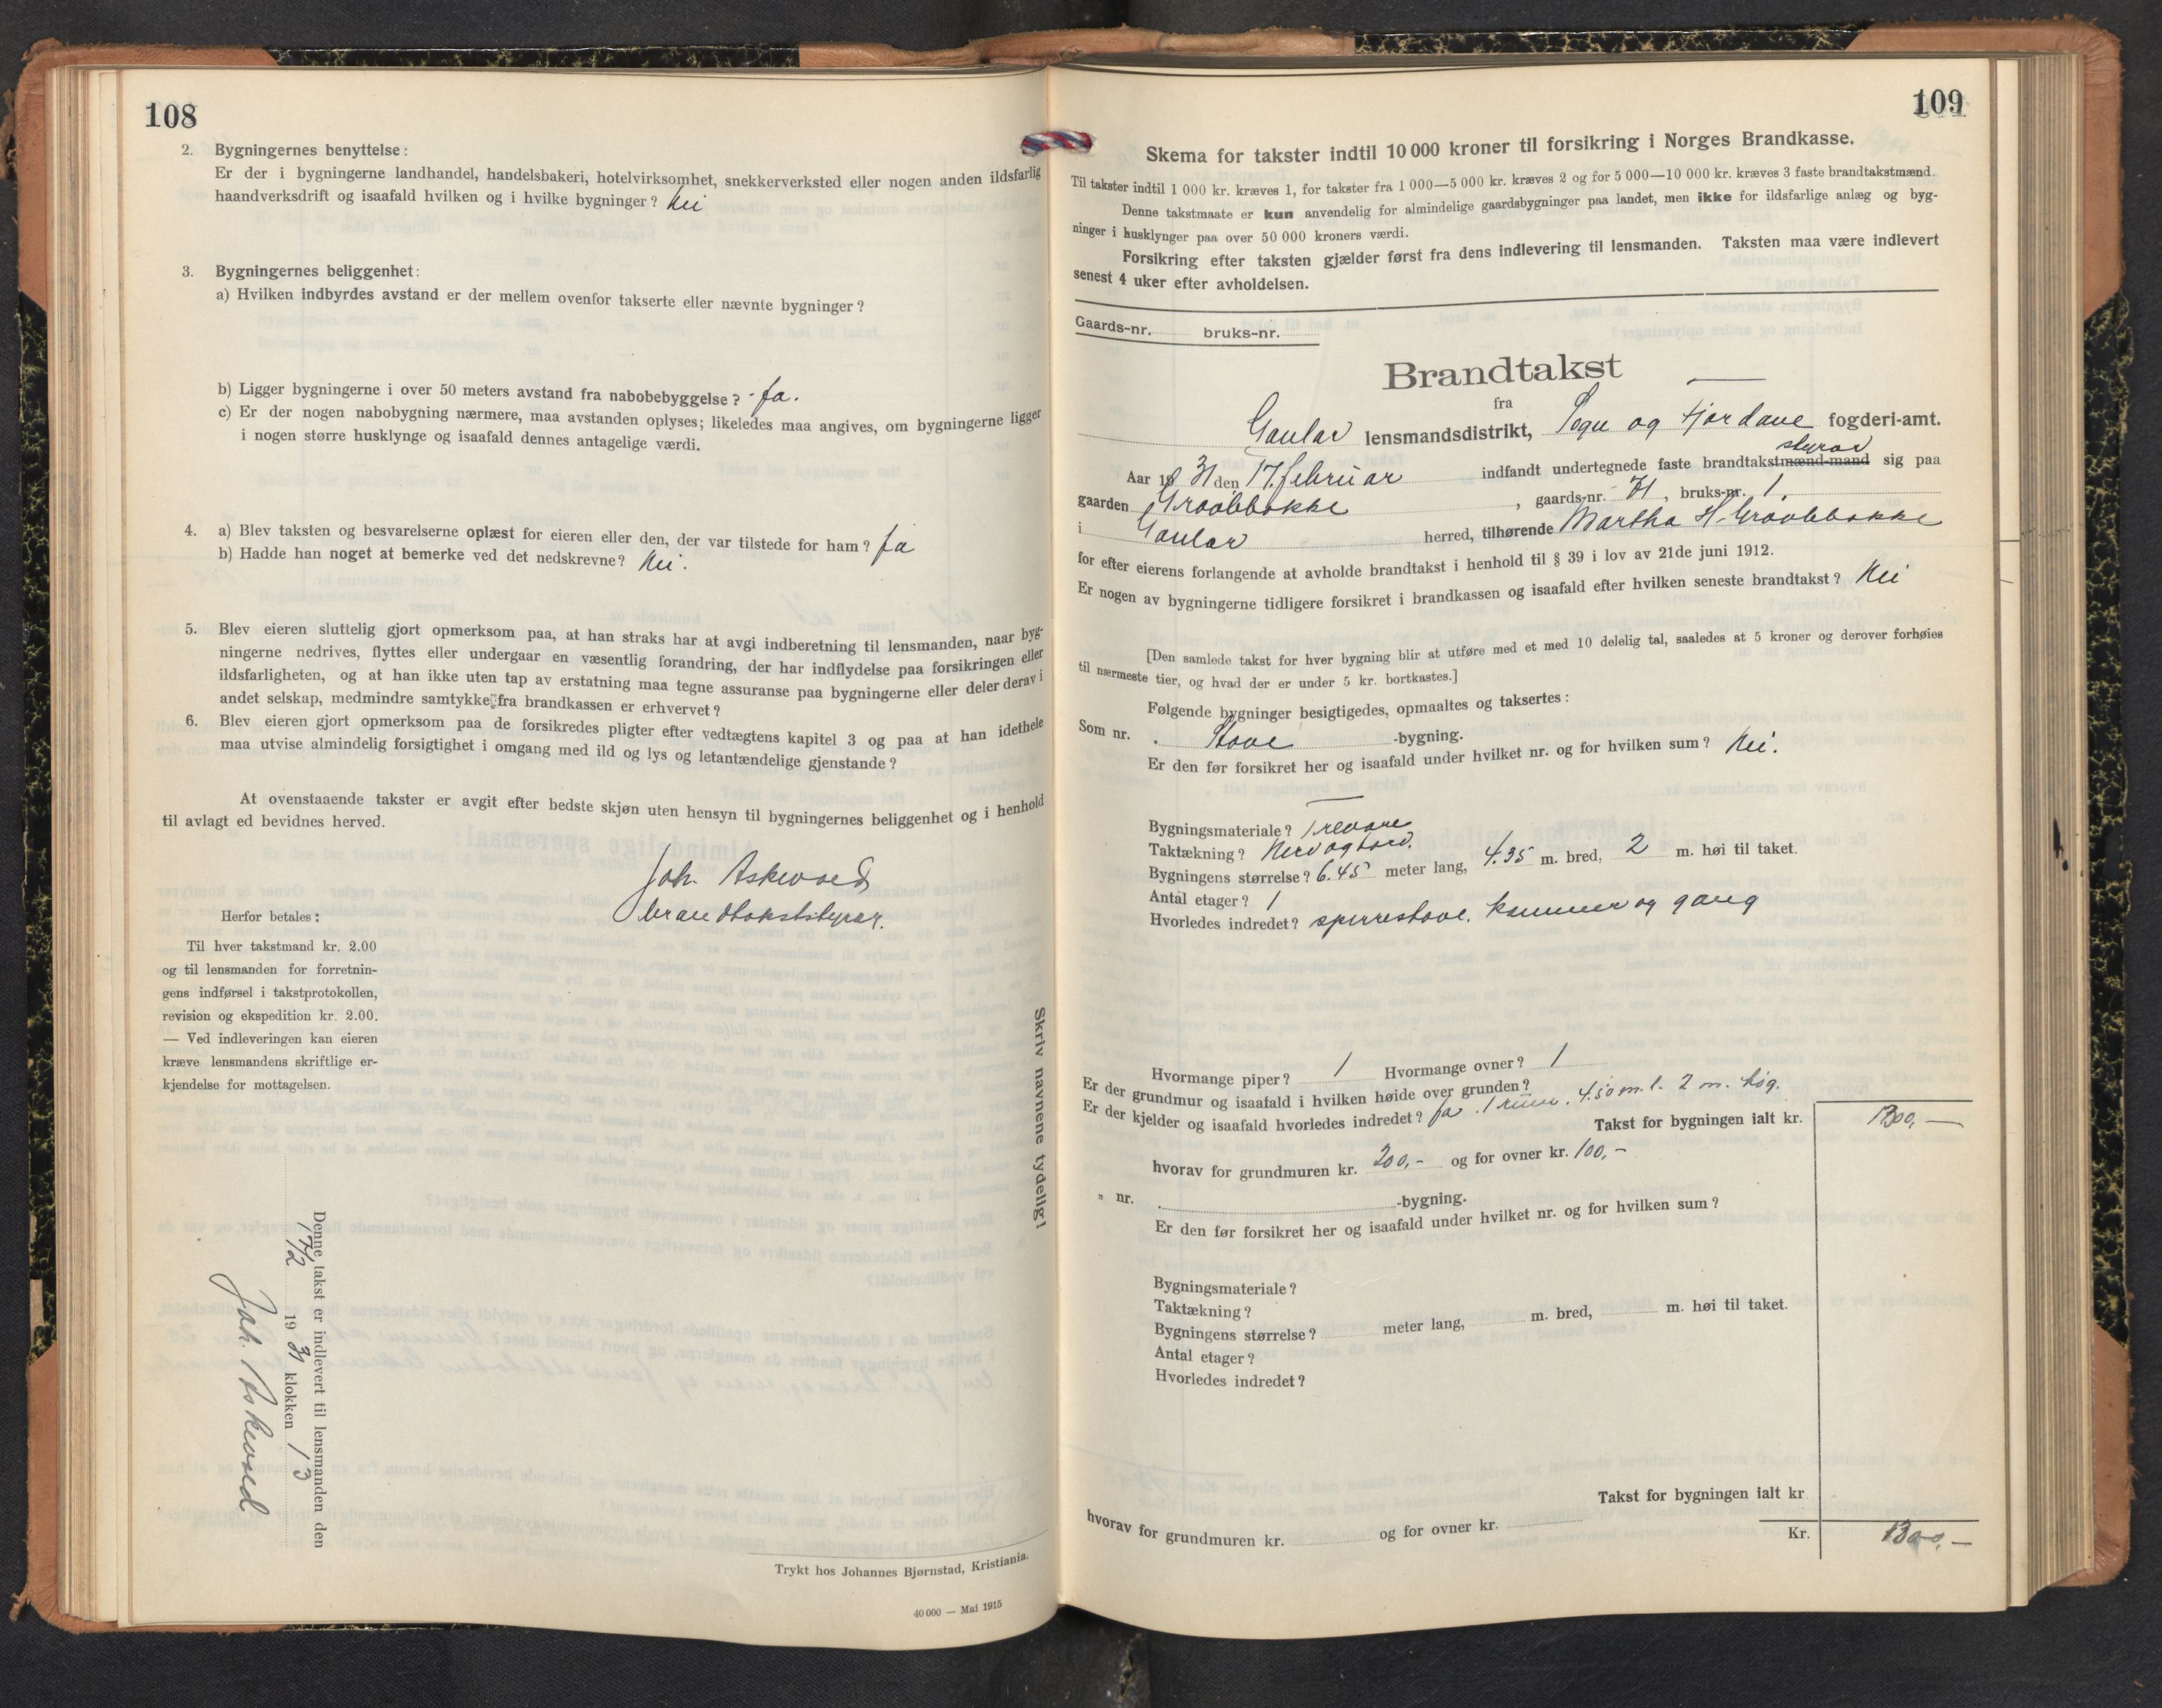 108
2. Bygningernes benyttelse:
Er der i bygningerne landhandel, handelsbakeri, hotelvirksomhet, snekkerverksted eller nogen anden ildsfarlig
haandverksdrift og isaafald hvilken og i hvilke bygninger? Nei
3. Bygningernes beliggenhet:
a) Hvilken indbyrdes avstand er der mellem ovenfor takserte eller nævnte bygninger?
b) Ligger bygningerne i over 50 meters avstand fra nabobebyggelse? Ja.
c) Er der nogen nabobygning nærmere, maa avstanden oplyses; likeledes maa angives, om bygningerne ligger
i nogen større husklynge og isaafald dennes antagelige værdi.
4. a) Blev taksten og besvarelserne oplæst for eieren eller den, der var tilstede for ham? Ja
b) Hadde han noget at bemerke ved det nedskrevne? Nei.
5. Blev eieren sluttelig gjort opmerksom paa, at han straks har at avgi indberetning til lensmanden, naar byg-
ningerne nedrives, flyttes eller undergaar en væsentlig forandring, der har indflydelse paa forsikringen eller
ildsfarligheten, og at han ikke uten tap av erstatning maa tegne assuranse paa bygningerne eller deler derav i
andet selskap, medmindre samtykke fra brandkassen er erhvervet?
6. Blev eieren gjort opmerksom paa de forsikredes pligter efter vedtægtens kapitel 3 og paa at han idethele
maa utvise almindelig forsigtighet i omgang med ild og lys og letantændelige gjenstande?
At ovenstaaende takster er avgit efter bedste skjøn uten hensyn til bygningernes beliggenhet og i henhold
til avlagt ed bevidnes herved.
Joh. Askevold
brandtakststyrar.
Herfor betales:
Til hver takstmand kr. 2.00
og til lensmanden for forretnin-
gens indførsel i takstprotokollen,
revision og ekspedition kr. 2.00.
— Ved indleveringen kan eieren
kræve lensmandens skriftlige er-
kjendelse for mottagelsen.
Skriv navnene tydelig!
Denne takst er indlevert til lensmanden den
17/2 1931 klokken 13
Joh. Askevold
Trykt hos Johannes Bjørnstad, Kristiania.
40 000 — Mai 1915
109
Skema for takster indtil 10 000 kroner til forsikring i Norges Brandkasse.
Til takster indtil 1 000 kr. kræves 1, for takster fra 1 000—5 000 kr. kræves 2 og for 5 000—10 000 kr. kræves 3 faste brandtakstmænd.
Denne takstmaate er kun anvendelig for almindelige gaardsbygninger paa landet, men ikke for ildsfarlige anlæg og byg-
ninger i husklynger paa over 50 000 kroners værdi.
Forsikring efter taksten gjælder først fra dens indlevering til lensmanden. Taksten maa være indlevert
senest 4 uker efter avholdelsen.
Gaards-nr. bruks-nr.
Brandtakst
fra
Gaular lensmandsdistrikt, Sogn og Fjordane fogderi-amt.
styrar
Aar 1931 den 17. februar indfandt undertegnede faste brandtakstmænd-mand sig paa
gaarden Graabbakke, gaards-nr. 71, bruks-nr. 1.
i Gaular herred, tilhørende Martha H. Graabbakke
for efter eierens forlangende at avholde brandtakst i henhold til § 39 i lov av 21de juni 1912.
Er nogen av bygningerne tidligere forsikret i brandkassen og isaafald efter hvilken seneste brandtakst? Nei
[Den samlede takst for hver bygning blir at utføre med et med 10 delelig tal, saaledes at 5 kroner og derover forhøies
til nærmeste tier, og hvad der er under 5 kr. bortkastes.]
Følgende bygninger besigtigedes, opmaaltes og taksertes:
Som nr. Stove -bygning.
Er den før forsikret her og isaafald under hvilket nr. og for hvilken sum? Nei.
Bygningsmateriale? Trevare
Taktækning? Nevr og tord.
Bygningens størrelse? 6.45 meter lang, 4.35 m. bred, 2 m. høi til taket.
Antal etager? 1
Hvorledes indredet? sperrestove, kammer og gang
Hvormange piper? 1 Hvormange ovner? 1
Er der grundmur og isaafald i hvilken høide over grunden?
Er der kjelder og isaafald hvorledes indredet? Ja. 1 rum. 4.50 m. l. 2 m. høg.
Takst for bygningen ialt kr. 1300,—
hvorav for grundmuren kr. 200,- og for ovner kr. 100,-
" nr. -bygning.
Er den før forsikret her og isaafald under hvilket nr. og for hvilken sum?
Bygningsmateriale?
Taktækning?
Bygningens størrelse? meter lang, m. bred, m. høi til taket.
Antal etager?
Hvorledes indredet?
Takst for bygningen ialt kr
hvorav for grundmuren kr. og for ovner kr.
Kr. 1300,—